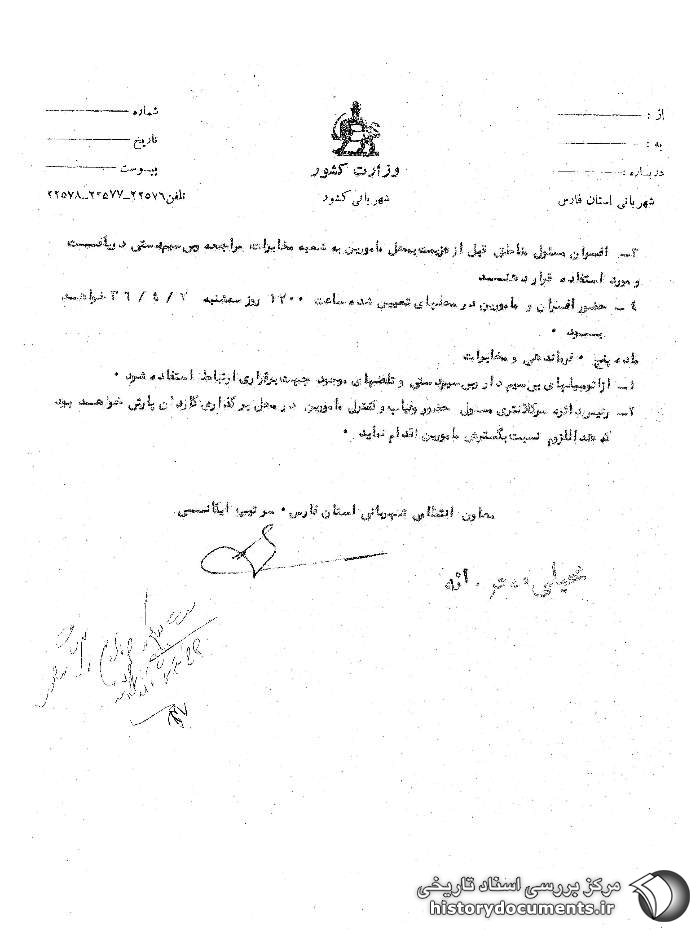 از :
به :
درباره :
شهربانی استان فارس
وزارت کشور
شهربانی کشور
شماره
تاریخ
پیوست
تلفن ۲۲۵۷۶-۲۲۵۷۷-۲۲۵۷۸
۳- افسران مسئول مناطق قبل از عزیمت بمحل مامورین به شعبه مخابرات مراجعه وبی سیم دستی دریافت
و مورد استفاده قرار دهند
۴- حضور افسران و مامورین در محلهای تعیین شده ساعت ۱۲۰۰ روز سه شنبه ۳۶/۴/ خواهد
بود .
ماده پنج . فرماندهی و مخابرات
۱- از اتومبیلهای بی سیم دار وبی سیم دستی و تلفنهای موجود جهت برقراری ارتباط استفاده شود .
۲- رئیس دائره سرکلانتری مسئول حضور وغیاب و کنترل مامورین در محل برگذاری گاردن پارتی خواهد بود
که عنداللزوم نسبت بگسترش مامورین اقدام نماید .
معاون انتظامی شهربانی استان فارس . سرتیپ
خیلی محرمانه
مرکز بررسی اسناد تاریخی
historydocuments.ir